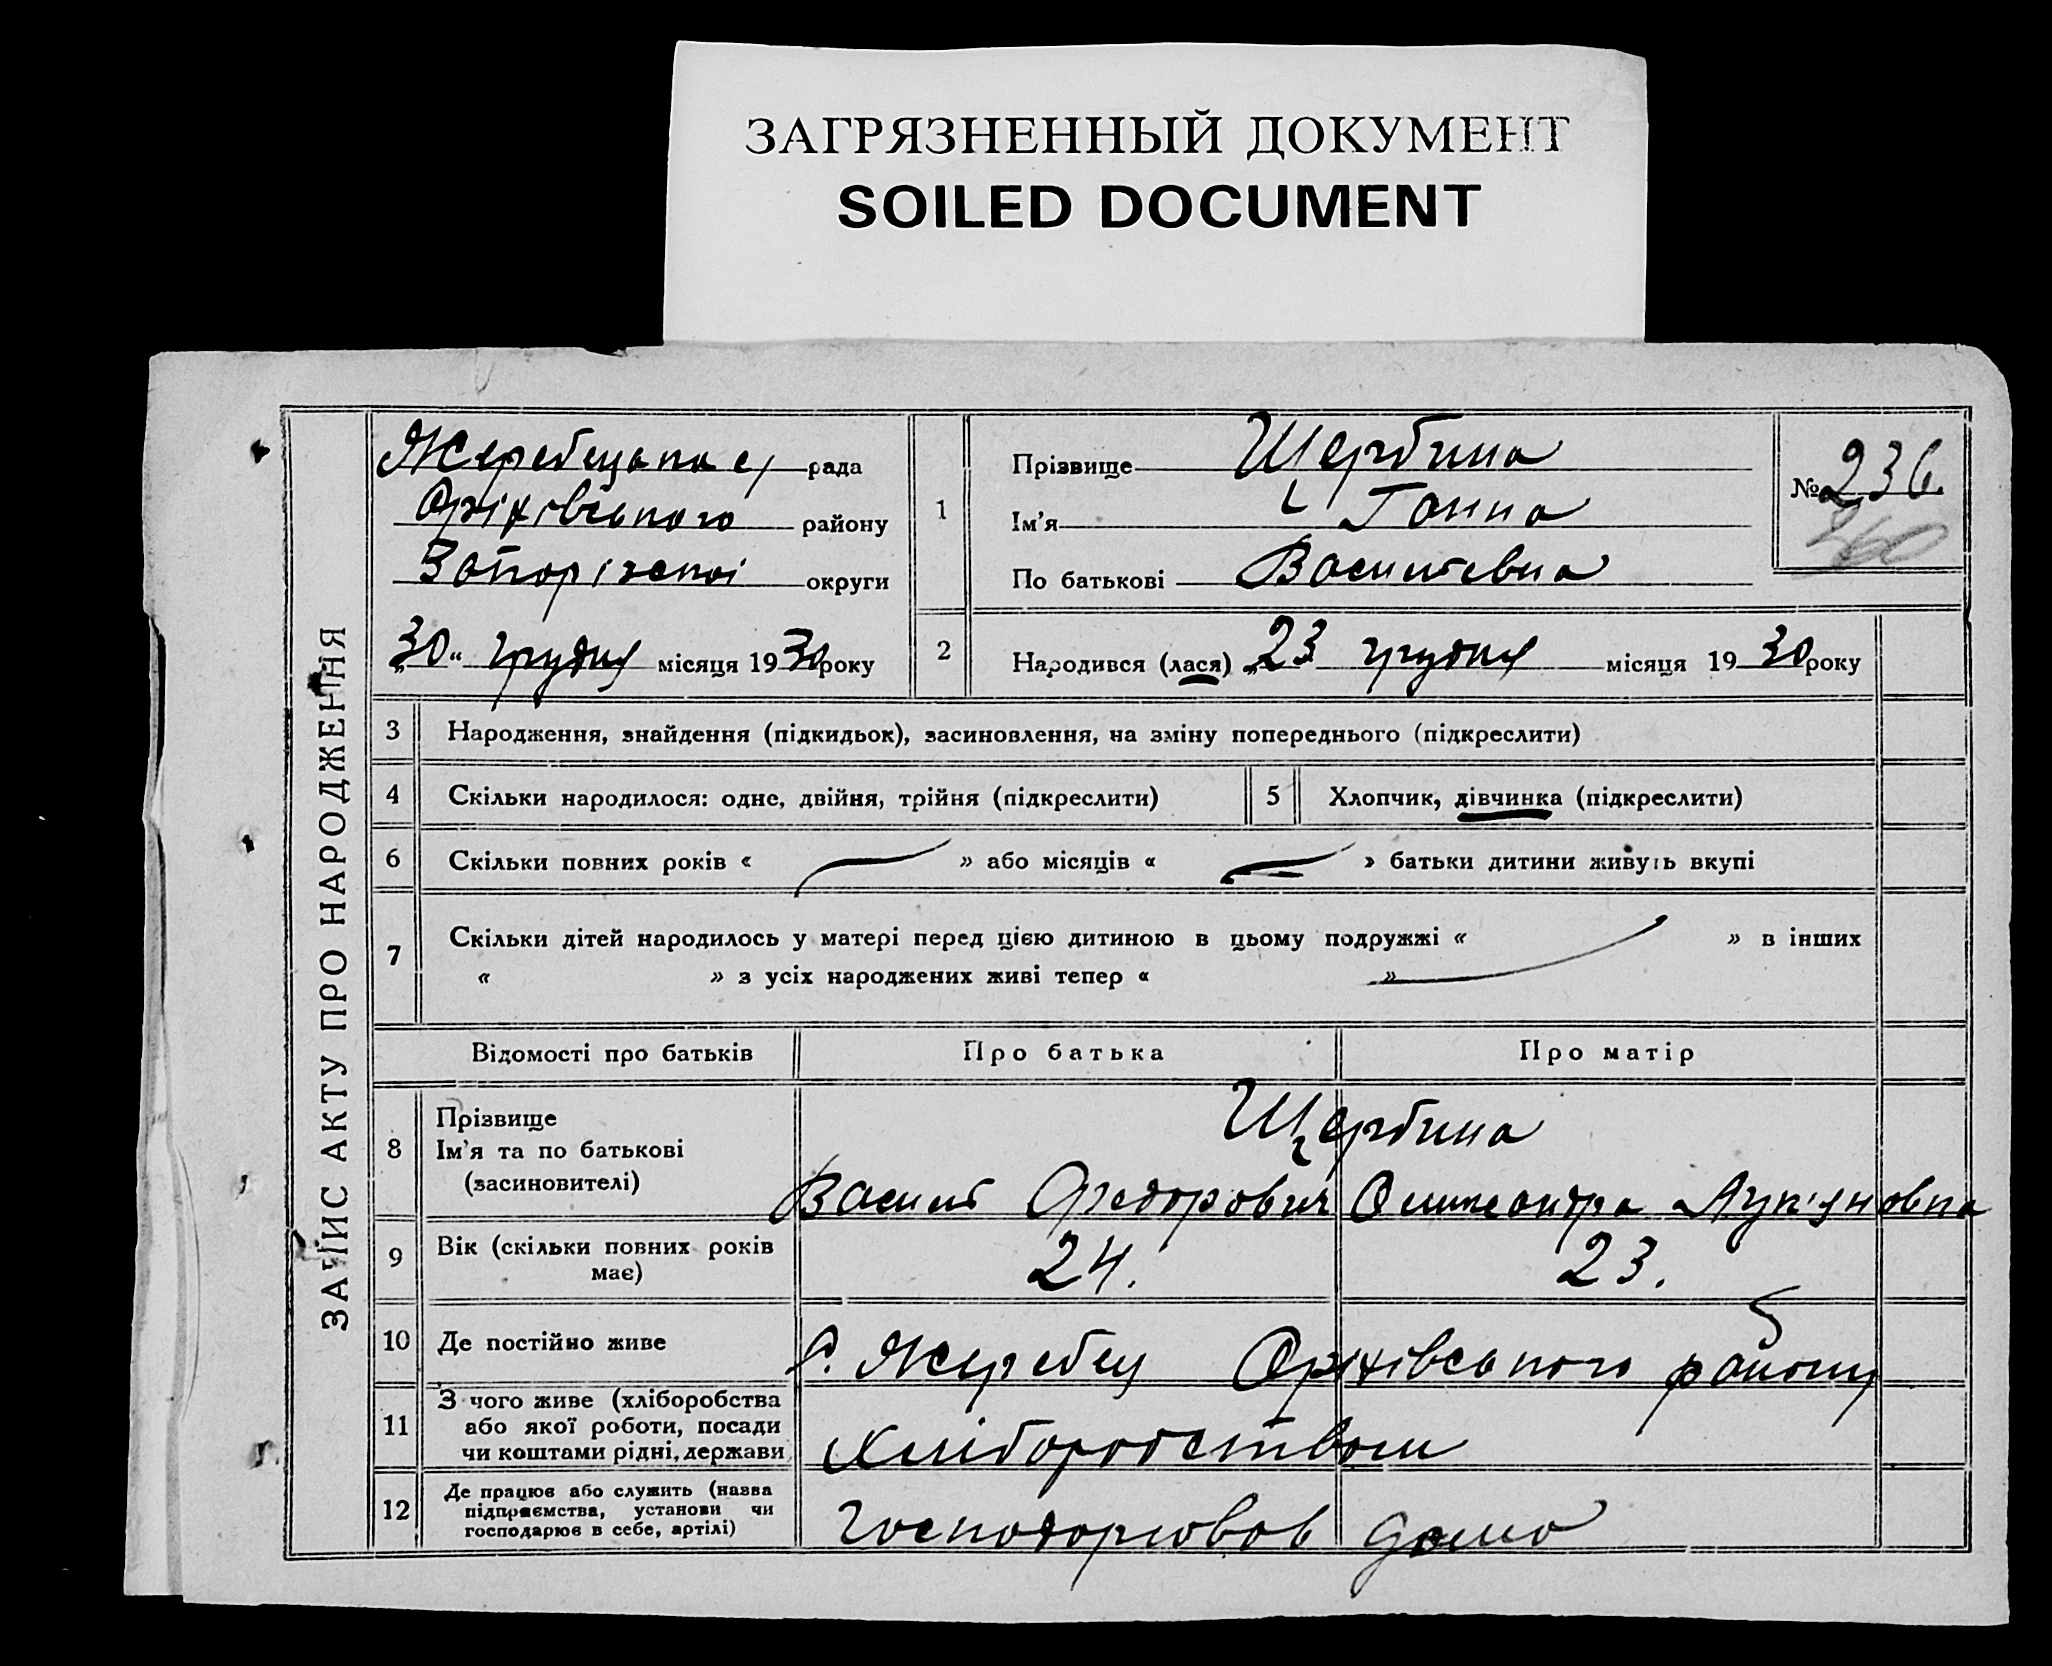 ЗАГРЯЗНЕННЫЙ ДОКУМЕНТ
SOILED DOCUMENT
ЗАПИС АКТУ ПРО НАРОДЖЕННЯ
Жеребецька с/ рада
Оріхівського району
Запорізької округи
„30“ грудня місяця 1930 року
1
Прізвище Щербина
Ім'я Ганна
По батькові Василевна
№ 236
360
2 Народився (лася) „23 грудня місяця 1930 року
3 Народження, знайдення (підкидьок), засиновлення, на зміну попереднього (підкреслити)
4 Скільки народилося: одне, двійня, трійня (підкреслити) 5 Хлопчик, дівчинка (підкреслити)
6 Скільки повних років « » або місяців « » батьки дитини живуть вкупі
7 Скільки дітей народилось у матері перед цією дитиною в цьому подружжі « » в інших
« » з усіх народжених живі тепер « »
Відомості про батьків Про батька Про матір
8 Прізвище
Ім'я та по батькові
(засиновителі)
Щербина
Василь Федорович Олександра Лук'яновна
9 Вік (скільки повних років має) 24. 23.
10 Де постійно живе с. Жеребец Оріхівського району
11 З чого живе (хліборобства
або якої роботи, посади
чи коштами рідні, держави
Хліборобством
12 Де працює або служить (назва
підприємства, установи чи
господарює в себе, артілі)
Господорював дома